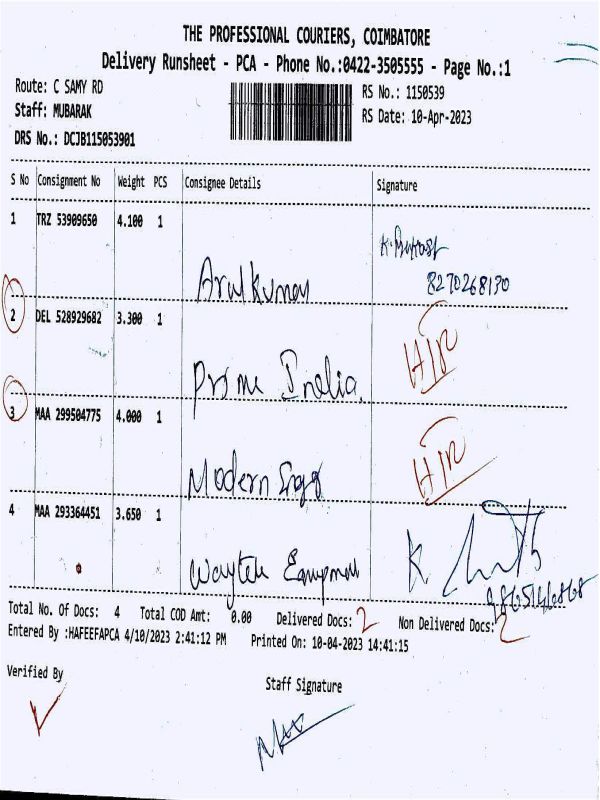 THE PROFESSIONAL COURIERS, COIMBATORE
Delivery Runsheet - PCA - Phone No.:0422-3505555 - Page No.:1
Route: C SAMY RD
RS No.: 1150539
Staff: MUBARAK
RS Date: 10-Apr-2023
DRS No.: DCJB115053901
S No Consignment No Weight PCS Consignee Details Signature
1 TRZ 53909650 4.100 1
Arulkumar 8270268130
2 DEL 528929682 3.300 1
Prime India.
3 MAA 299504775 4.000 1
Modern Engg
4 MAA 293364451 3.650 1
K
9865146868
Total No. Of Docs: 4 Total COD Amt: 0.00 Delivered Docs: 2 Non Delivered Docs: 2
Entered By :HAFEEFAPCA 4/10/2023 2:41:12 PM Printed On: 10-04-2023 14:41:15
Verified By
Staff Signature